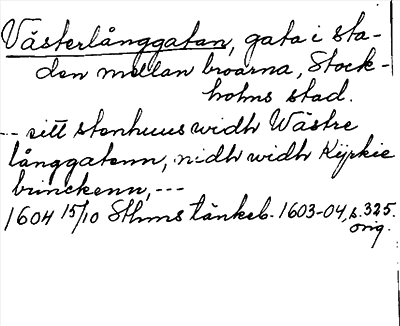 Västerlånggatan, gata i sta-
den mellan broarna, Stock-
holms stad.
-- sitt stenhuus widh Wästre
långgatenn, nidh widh Kijrkie
brinckenn, ---
1604 15/10 Sthms tänkeb. 1603-04, s. 325.
orig.